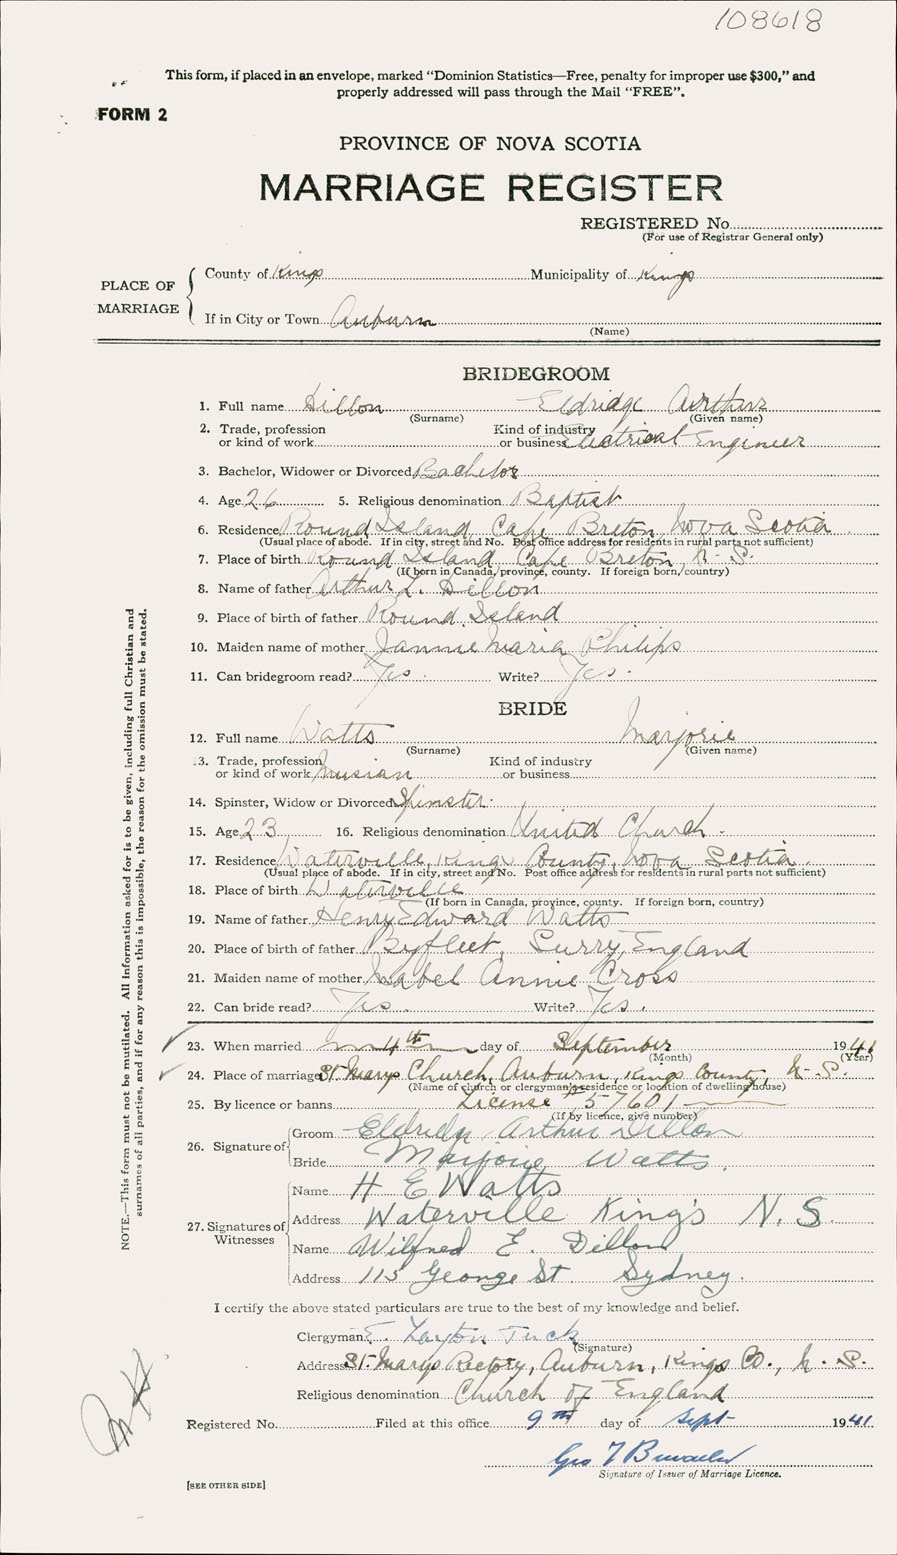 108618
This form, if placed in an envelope, marked “Dominion Statistics—Free, penalty for improper use $300,” and
properly addressed will pass through the Mail “FREE”.
FORM 2
PROVINCE OF NOVA SCOTIA
MARRIAGE REGISTER
REGISTERED No.
(For use of Registrar General only)
PLACE OF MARRIAGE
County of Kings Municipality of Kings
If in City or Town Auburn
(Name)
BRIDEGROOM
1. Full name Dillon Eldridge Arthur
(Surname) (Given name)
2. Trade, profession or kind of work Kind of industry or business Electrical Engineer
3. Bachelor, Widower or Divorced Bachelor
4. Age 26 5. Religious denomination Baptist
6. Residence Round Island, Cape Breton, Nova Scotia
(Usual place of abode. If in city, street and No. Post office address for residents in rural parts not sufficient)
7. Place of birth Round Island, Cape Breton, N. S.
(If born in Canada, province, county. If foreign born, country)
8. Name of father Arthur L. Dillon
9. Place of birth of father Round Island
10. Maiden name of mother Jannie Maria Philips
11. Can bridegroom read? Yes. Write? Yes.
BRIDE
12. Full name Watts Marjorie
(Surname) (Given name)
13. Trade, profession or kind of work Kind of industry or business
14. Spinster, Widow or Divorced Spinster.
15. Age 23 16. Religious denomination United Church.
17. Residence Waterville, Kings County, Nova Scotia.
(Usual place of abode. If in city, street and No. Post office address for residents in rural parts not sufficient)
18. Place of birth Waterville
(If born in Canada, province, county. If foreign born, country)
19. Name of father Henry Edward Watts
20. Place of birth of father Byfleet, Surry, England
21. Maiden name of mother Mabel Annie Cross
22. Can bride read? Yes. Write? Yes.
23. When married 4th day of September 1941
(Month) (Year)
24. Place of marriage St. Marys Church, Auburn, Kings County, N. S.
(Name of church or clergyman's residence or location of dwelling house)
25. By licence or banns License # 57601
(If by licence, give number)
26. Signature of
Groom Eldridge Arthur Dillon
Bride Marjorie Watts.
27. Signatures of Witnesses
Name H E Watts
Address Waterville King's N. S.
Name Wilfred E. Dillon
Address 115 George St. Sydney.
I certify the above stated particulars are true to the best of my knowledge and belief.
Clergyman E. Layton Tuck
(Signature)
Address St. Marys Rectory, Auburn, Kings Co., N. S.
Religious denomination Church of England
Registered No. Filed at this office 9th day of Sept 1941
Geo
Signature of Issuer of Marriage Licence.
[SEE OTHER SIDE]
NOTE.—This form must not be mutilated. All information asked for is to be given, including full Christian and
surnames of all parties, and if for any reason this is impossible, the reason for the omission must be stated.